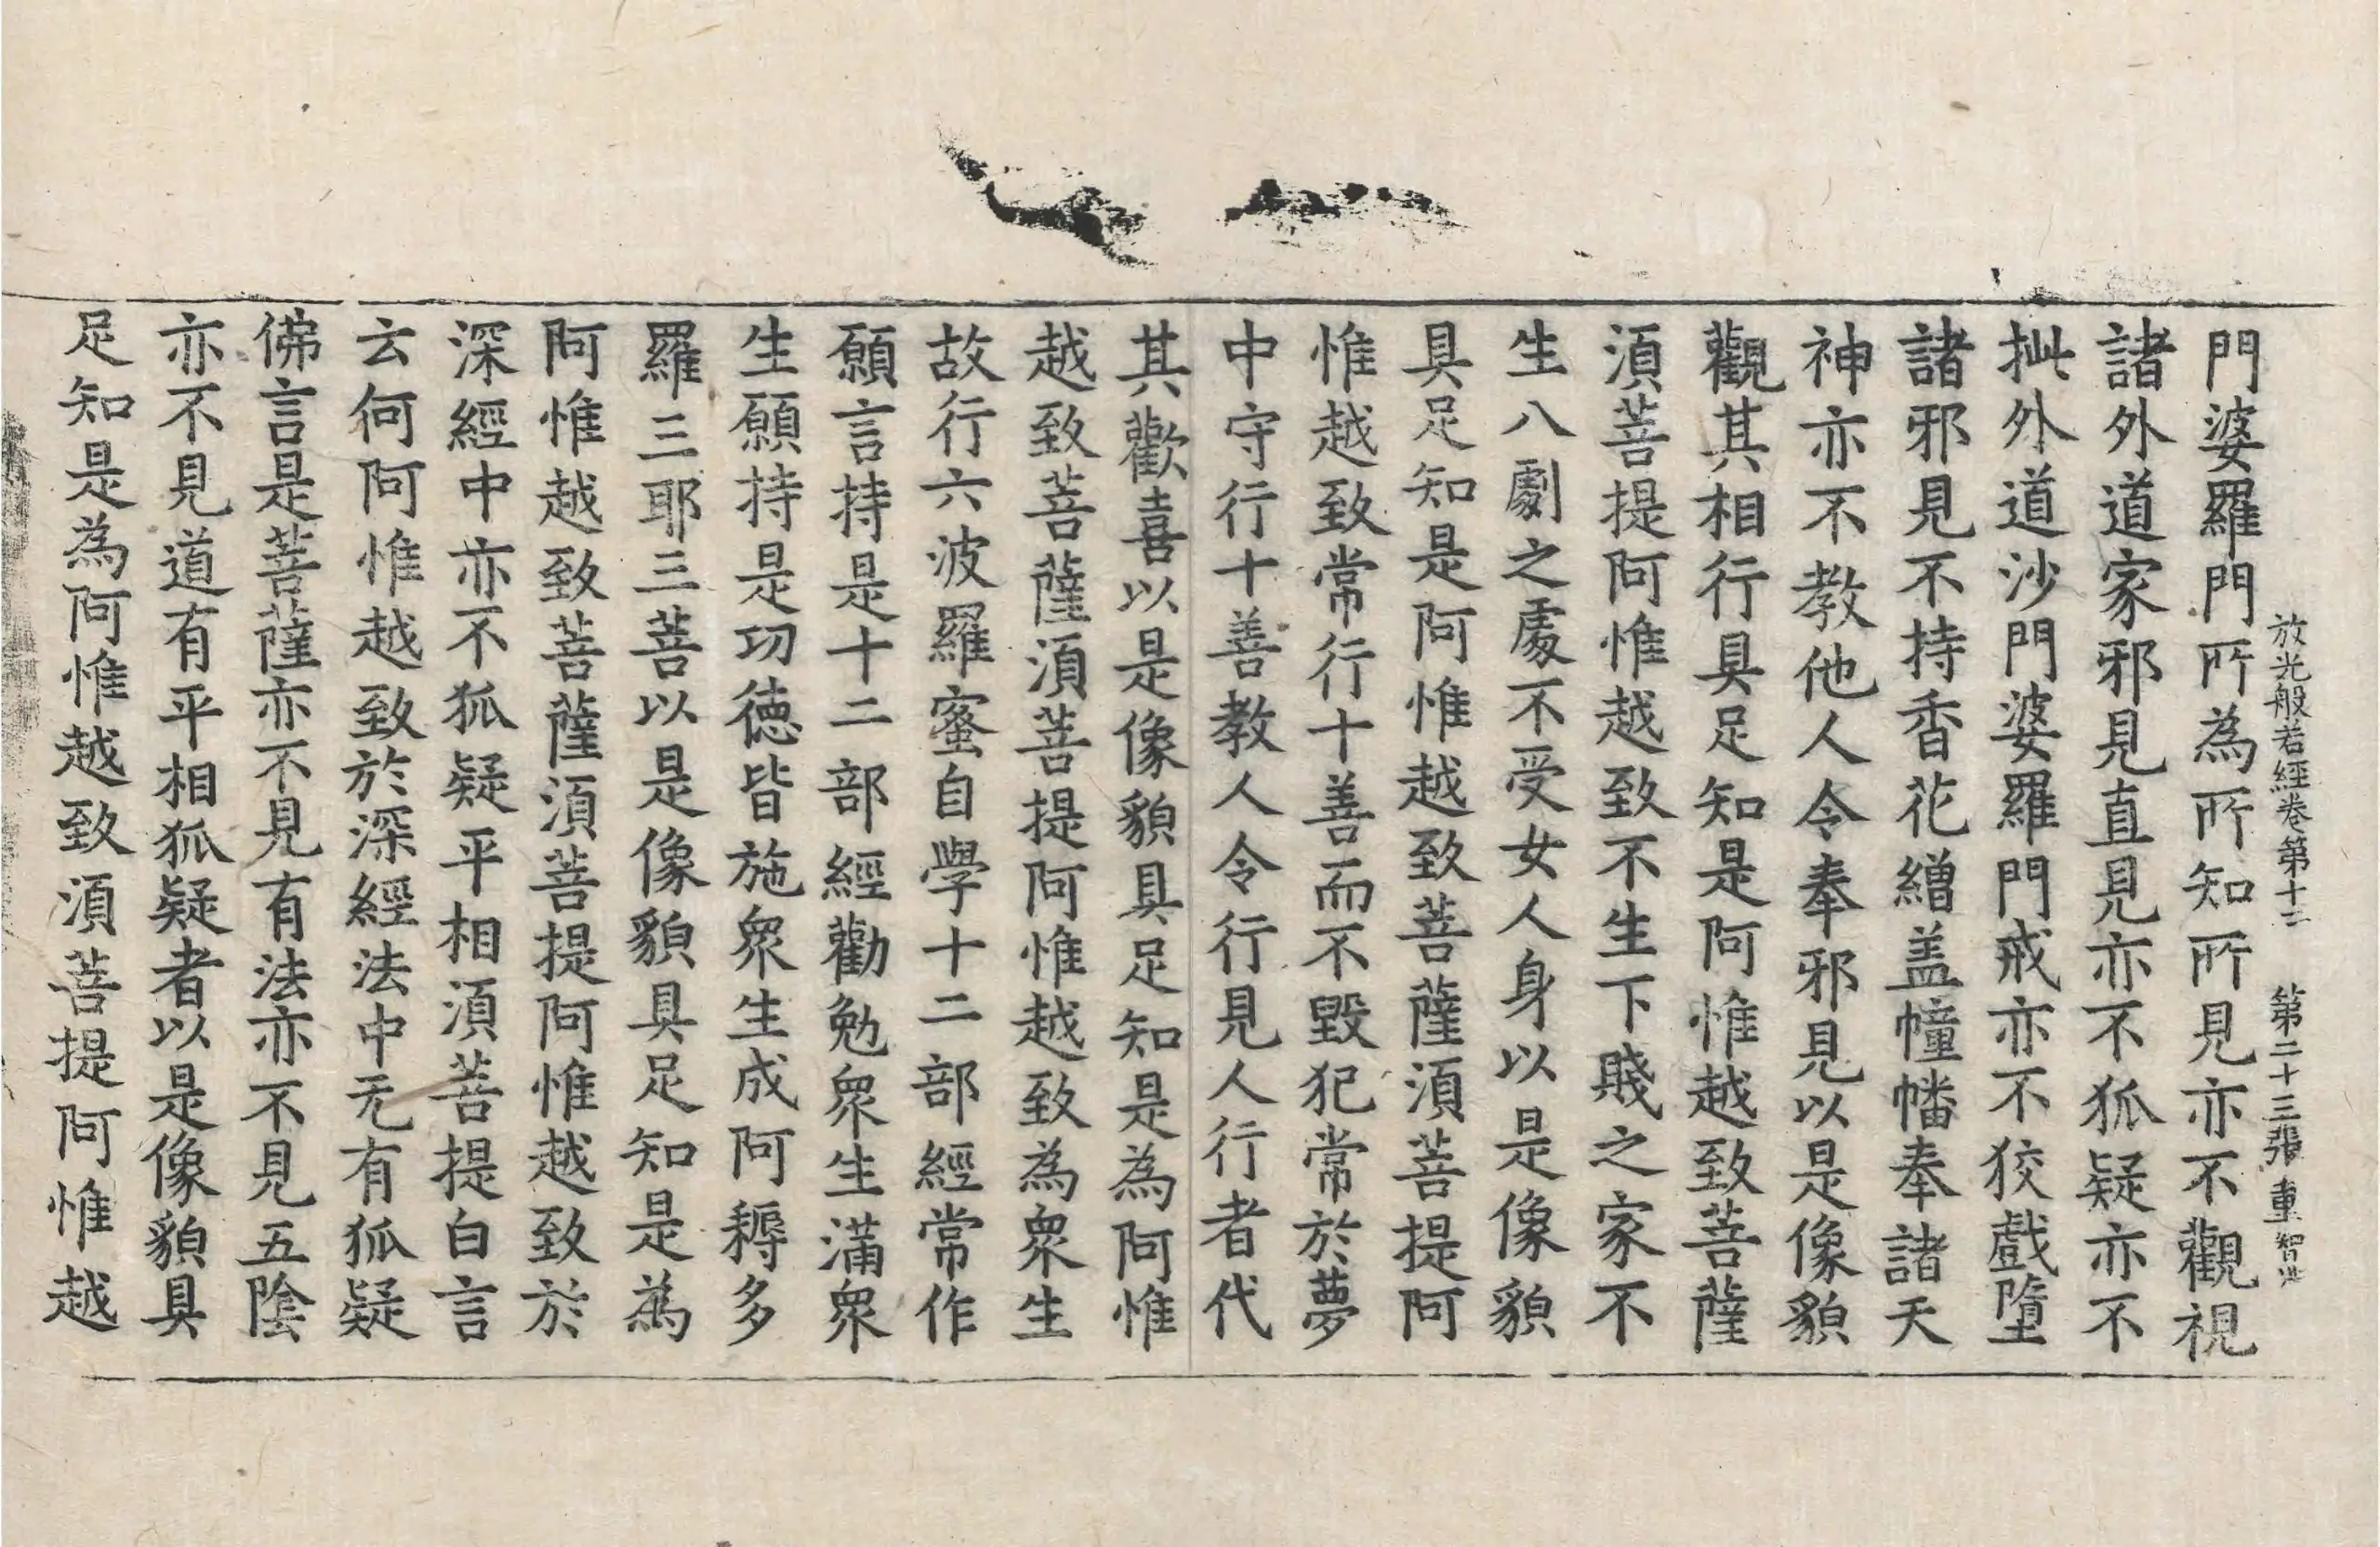 放光般若經卷第十二　第二十三張　重　智
門婆羅門所為所知所見亦不觀視
諸外道家邪見直見亦不狐疑亦不
㧗外道沙門婆羅門戒亦不狡戲墮
諸邪見不持香花繒盖幢幡奉諸天
神亦不教他人令奉邪見以是像貌
觀其相行具足知是阿惟越致菩薩
湏菩提阿惟越致不生下賤之家不
生八劇之處不受女人身以是像貌
具足知是阿惟越致菩薩湏菩提阿
惟越致常行十善而不毀犯常於夢
中守行十善教人令行見人行者代
其歡喜以是像貌具足知是為阿惟
越致菩薩湏菩提阿惟越致為衆生
故行六波羅蜜自學十二部經常作
願言持是十二部經勸勉衆生滿衆
生願持是功德皆施衆生成阿耨多
羅三耶三菩以是像貌具足知是為
阿惟越致菩薩湏菩提阿惟越致於
深經中亦不狐疑平相湏菩提白言
云何阿惟越致於深經法中无有狐疑
佛言是菩薩亦不見有法亦不見五陰
亦不見道有平相狐疑者以是像貌具
足知是為阿惟越致湏菩提阿惟越